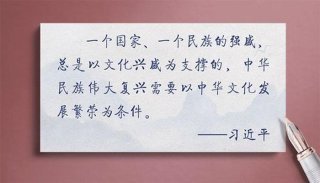 一个国家、一个民族的强盛，
总是以文化兴盛为支撑的，中华
民族伟大复兴需要以中华文化发
展繁荣为条件。
——习近平